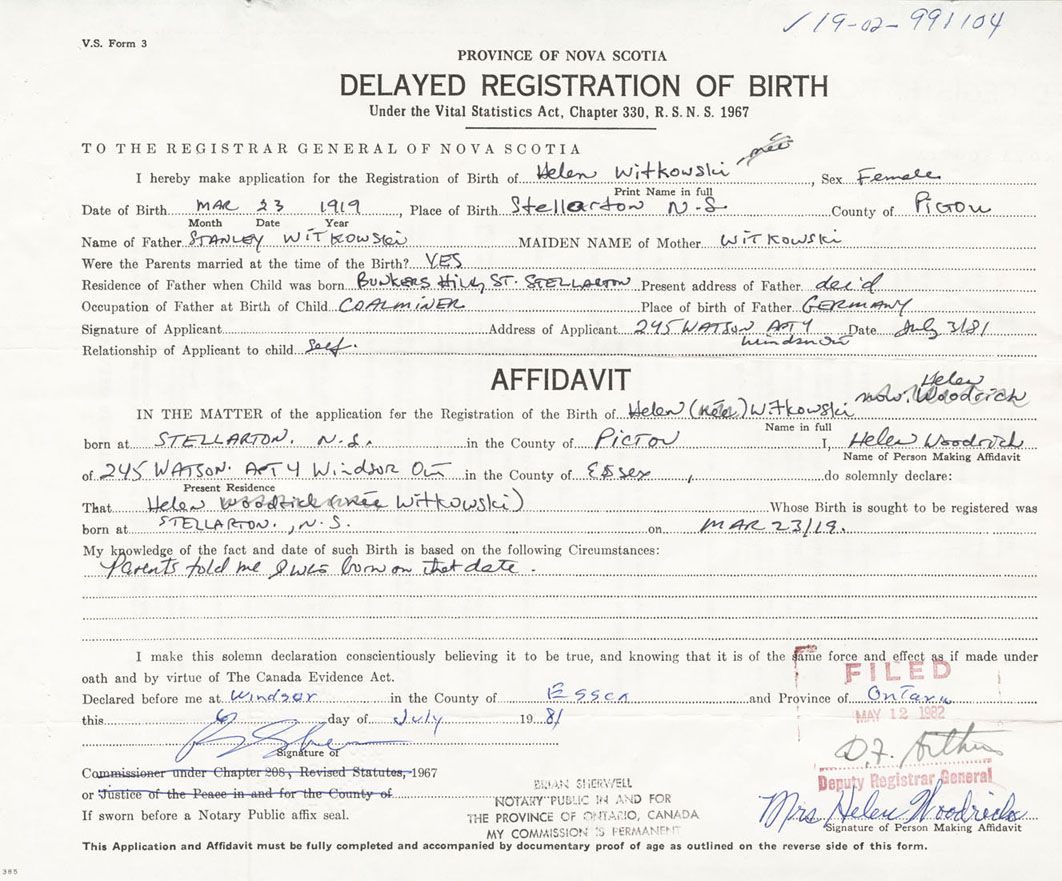 ✓ 19-02-991104
V.S. Form 3
PROVINCE OF NOVA SCOTIA
DELAYED REGISTRATION OF BIRTH
Under the Vital Statistics Act, Chapter 330, R. S. N. S. 1967
TO THE REGISTRAR GENERAL OF NOVA SCOTIA
I hereby make application for the Registration of Birth of Helen Witkowski, née, Sex Female
Print Name in full
Date of Birth MAR 23 1919, Place of Birth Stellarton N-S County of PICTOU
Month Date Year
Name of Father STANLEY WITKOWSKI MAIDEN NAME of Mother WITKOWSKI
Were the Parents married at the time of the Birth? YES
Residence of Father when Child was born BUNKERS HILL, ST. STELLARTON Present address of Father dec'd
Occupation of Father at Birth of Child COALMINER Place of birth of Father GERMANY
Signature of Applicant Address of Applicant 245 WATSON APT 4 Date July 3/81
Windsor
Relationship of Applicant to child self.
AFFIDAVIT
Helen
now. Woodrich
IN THE MATTER of the application for the Registration of the Birth of Helen (née) Witkowski
Name in full
born at STELLARTON. N.S. in the County of PICTOU I, Helen Woodrich
Name of Person Making Affidavit
of 245 WATSON. APT 4 Windsor Ont in the County of Essex, do solemnly declare:
Present Residence
That Helen Woodrich (née Witkowski) Whose Birth is sought to be registered was
born at STELLARTON., N.S. on MAR 23/19.
My knowledge of the fact and date of such Birth is based on the following Circumstances:
Parents told me I was born on that date.
I make this solemn declaration conscientiously believing it to be true, and knowing that it is of the same force and effect as if made under
oath and by virtue of The Canada Evidence Act.
FILED
Declared before me at Windsor in the County of Essex and Province of Ontario
MAY 12 1982
this 6 day of July 19 81
Signature of
Commissioner under Chapter 208, Revised Statutes, 1967
Deputy Registrar General
or Justice of the Peace in and for the County of
BRIAN SHERWELL
NOTARY PUBLIC IN AND FOR
THE PROVINCE OF ONTARIO, CANADA
MY COMMISSION IS PERMANENT
If sworn before a Notary Public affix seal.
Mrs Helen Woodrich
Signature of Person Making Affidavit
This Application and Affidavit must be fully completed and accompanied by documentary proof of age as outlined on the reverse side of this form.
385